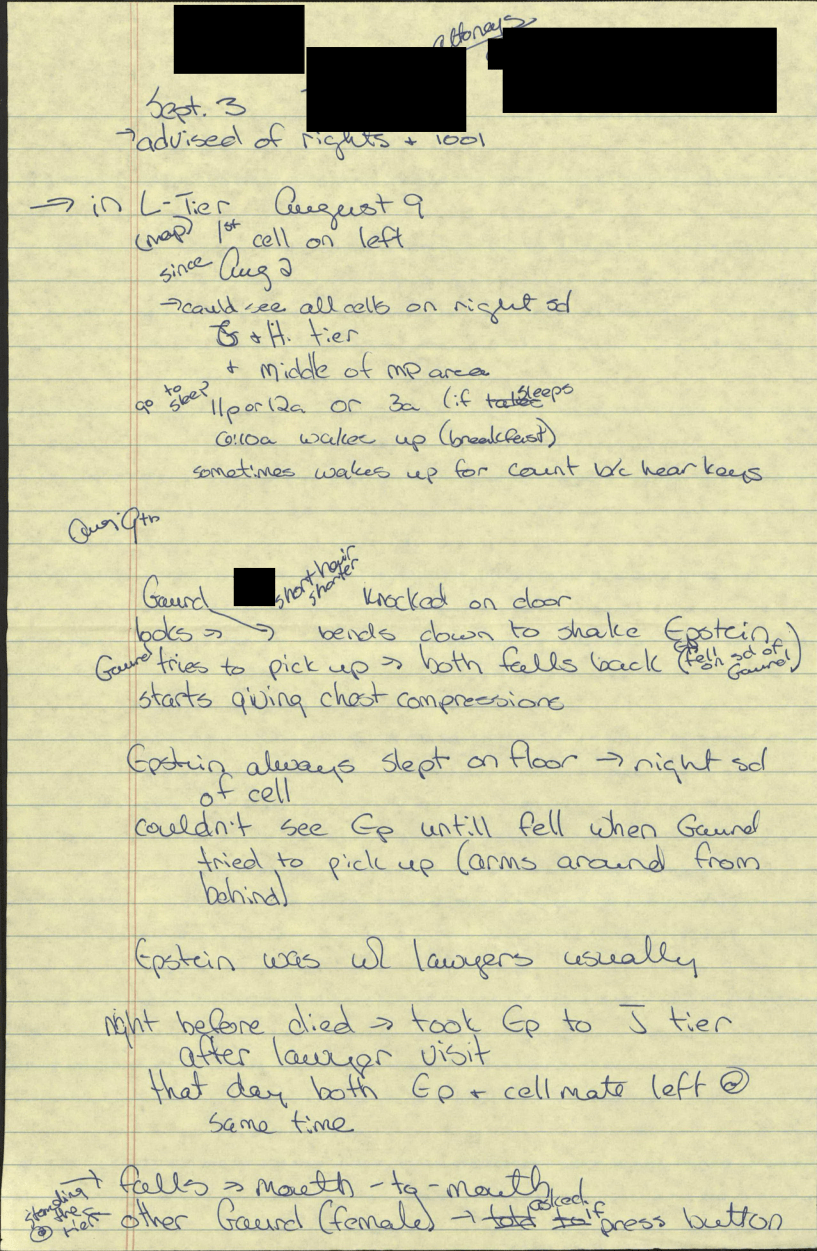 attorneys
Sept. 3
→advised of rights + 1001
→ in L-Tier August 9
(map) 1st cell on left
since Aug 2
→could see all cells on right sd
G + H. tier
+ middle of MP area
go to sleep 11p or 12a or 3a (if sleeps
6:10a wakes up (breakfast)
sometimes wakes up for count b/c hear keys
Aug 9th
Gaurd short hair shorter knocked on door
looks → bends down to shake Epstein
Gaurd tries to pick up → both falls back (Ep fell on sd of Gaurd)
starts giving chest compressions
Epstein always slept on floor → right sd
of cell
couldn't see Ep untill fell when Gaurd
tried to pick up (arms around from
behind)
Epstein was w/ lawyers usually
right before died → took Ep to J tier
after lawyer visit
that day both Ep + cellmate left @
same time
→ falls → mouth-to-mouth
standing @ the tier other Gaurd (female) → told to asked if press button